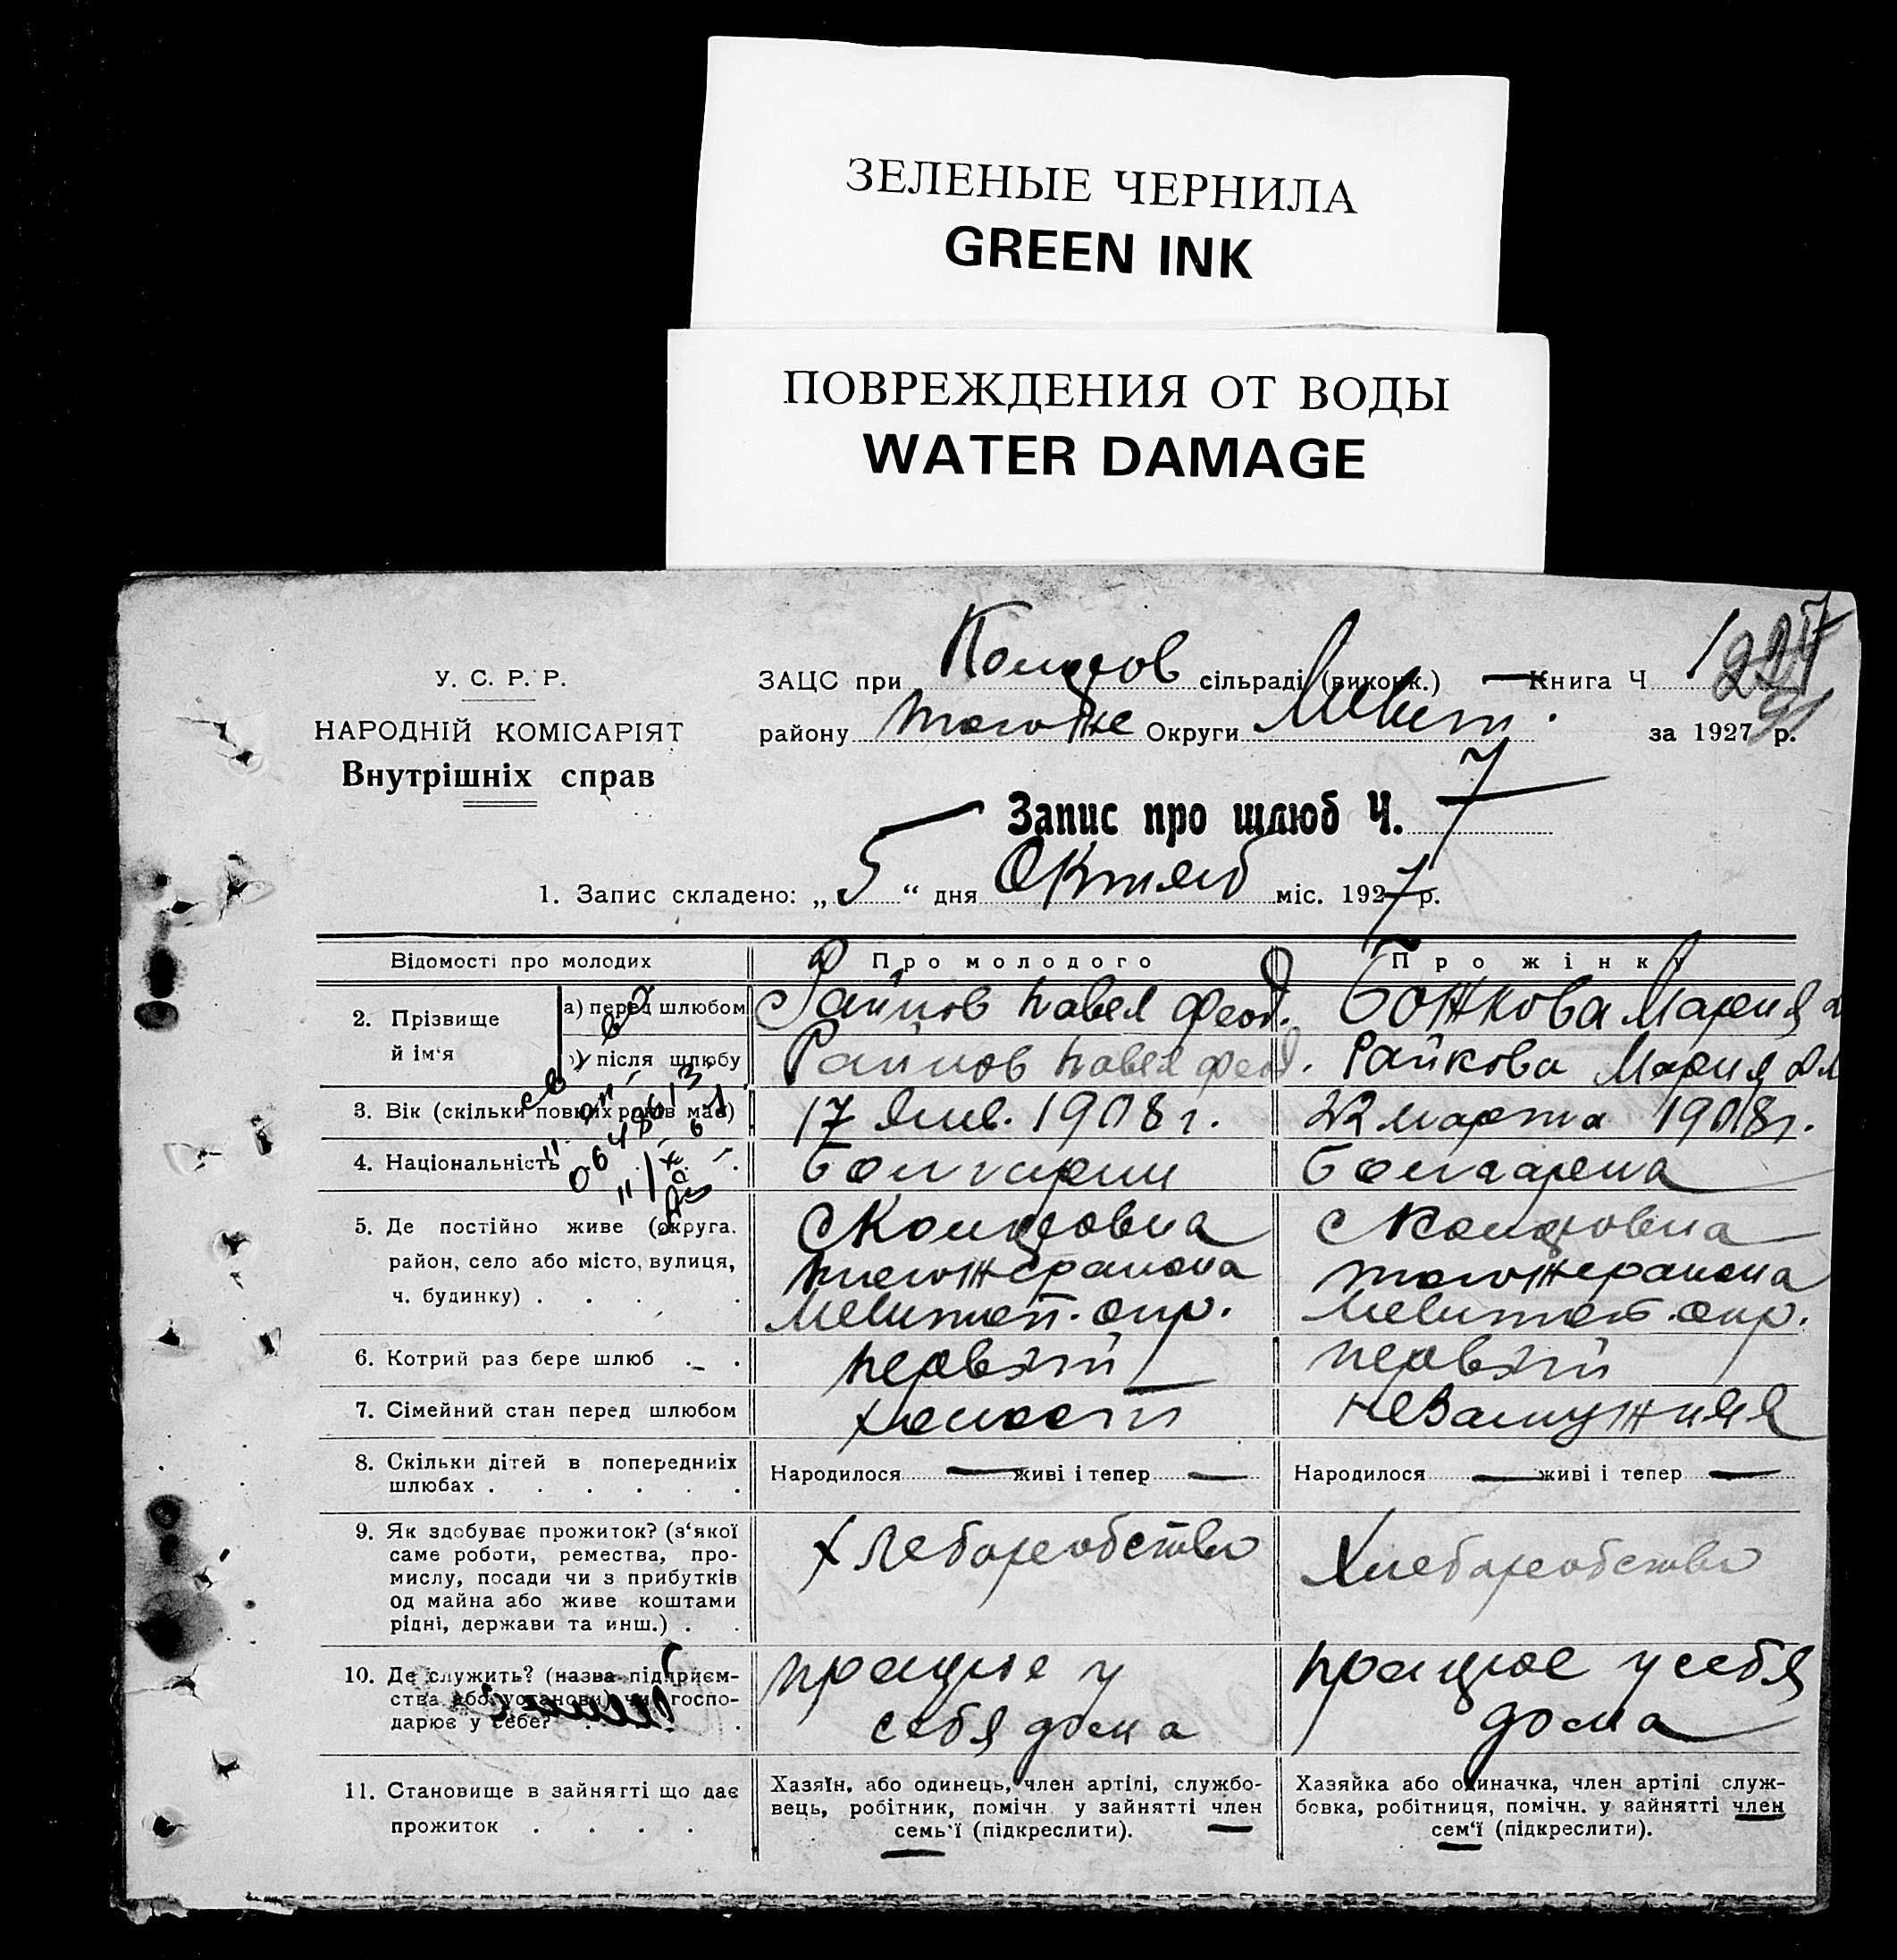 ЗЕЛЕНЫЕ ЧЕРНИЛА
GREEN INK
ПОВРЕЖДЕНИЯ ОТ ВОДЫ
WATER DAMAGE
У. С. Р. Р.
НАРОДНІЙ КОМІСАРІЯТ
Внутрішніх справ
ЗАЦС при сільраді (виконк.) Книга Ч 1
району тогоже Округи Мелит. за 1927 р.
Запис про шлюб Ч. 7
1. Запис складено: „ 5 “ дня Октяб міс. 1927 р.
Відомості про молодих Про молодого Про жінку
2. Прізвище й ім‘я а) перед шлюбом Райков Павел Феод. Божкова Мария
після шлюбу Райков Павел Феод. Райкова Мария
3. Вік (скільки повних років має) 17 Янв. 1908 г. 22 марта 1908 г.
4. Національність Болгарин Болгарка
5. Де постійно живе (округа. район, село або місто, вулиця, ч. будинку) . . . .
тогоже района тогоже района
Мелитоп. окр. Мелитоп. окр.
6. Котрий раз бере шлюб первый первый
7. Сімейний стан перед шлюбом холост незамужняя
8. Скільки дітей в попередниіх шлюбах . . . . . . Народилося — живі і тепер — Народилося — живі і тепер —
9. Як здобуває прожиток? (з‘якої
саме роботи, ремества, про-
мислу, посади чи з прибутків
од майна або живе коштами
рідні, держави та инш.) . .
Хлебаробство Хлебаробство
10. Де служить? (назва підприєм-
ства або установи) чи госпо-
дарює у себе?
працює у себя дома працює у себя дома
11. Становище в зайнятті що дає
прожиток . . . .
Хазяїн, або одинець, член артілі, службо-
вець, робітник, помічн. у зайнятті член
семь‘ї (підкреслити).
Хазяйка або одиначка, член артілі служ-
бовка, робітниця, помічн. у зайнятті член
сем‘ї (підкреслити).